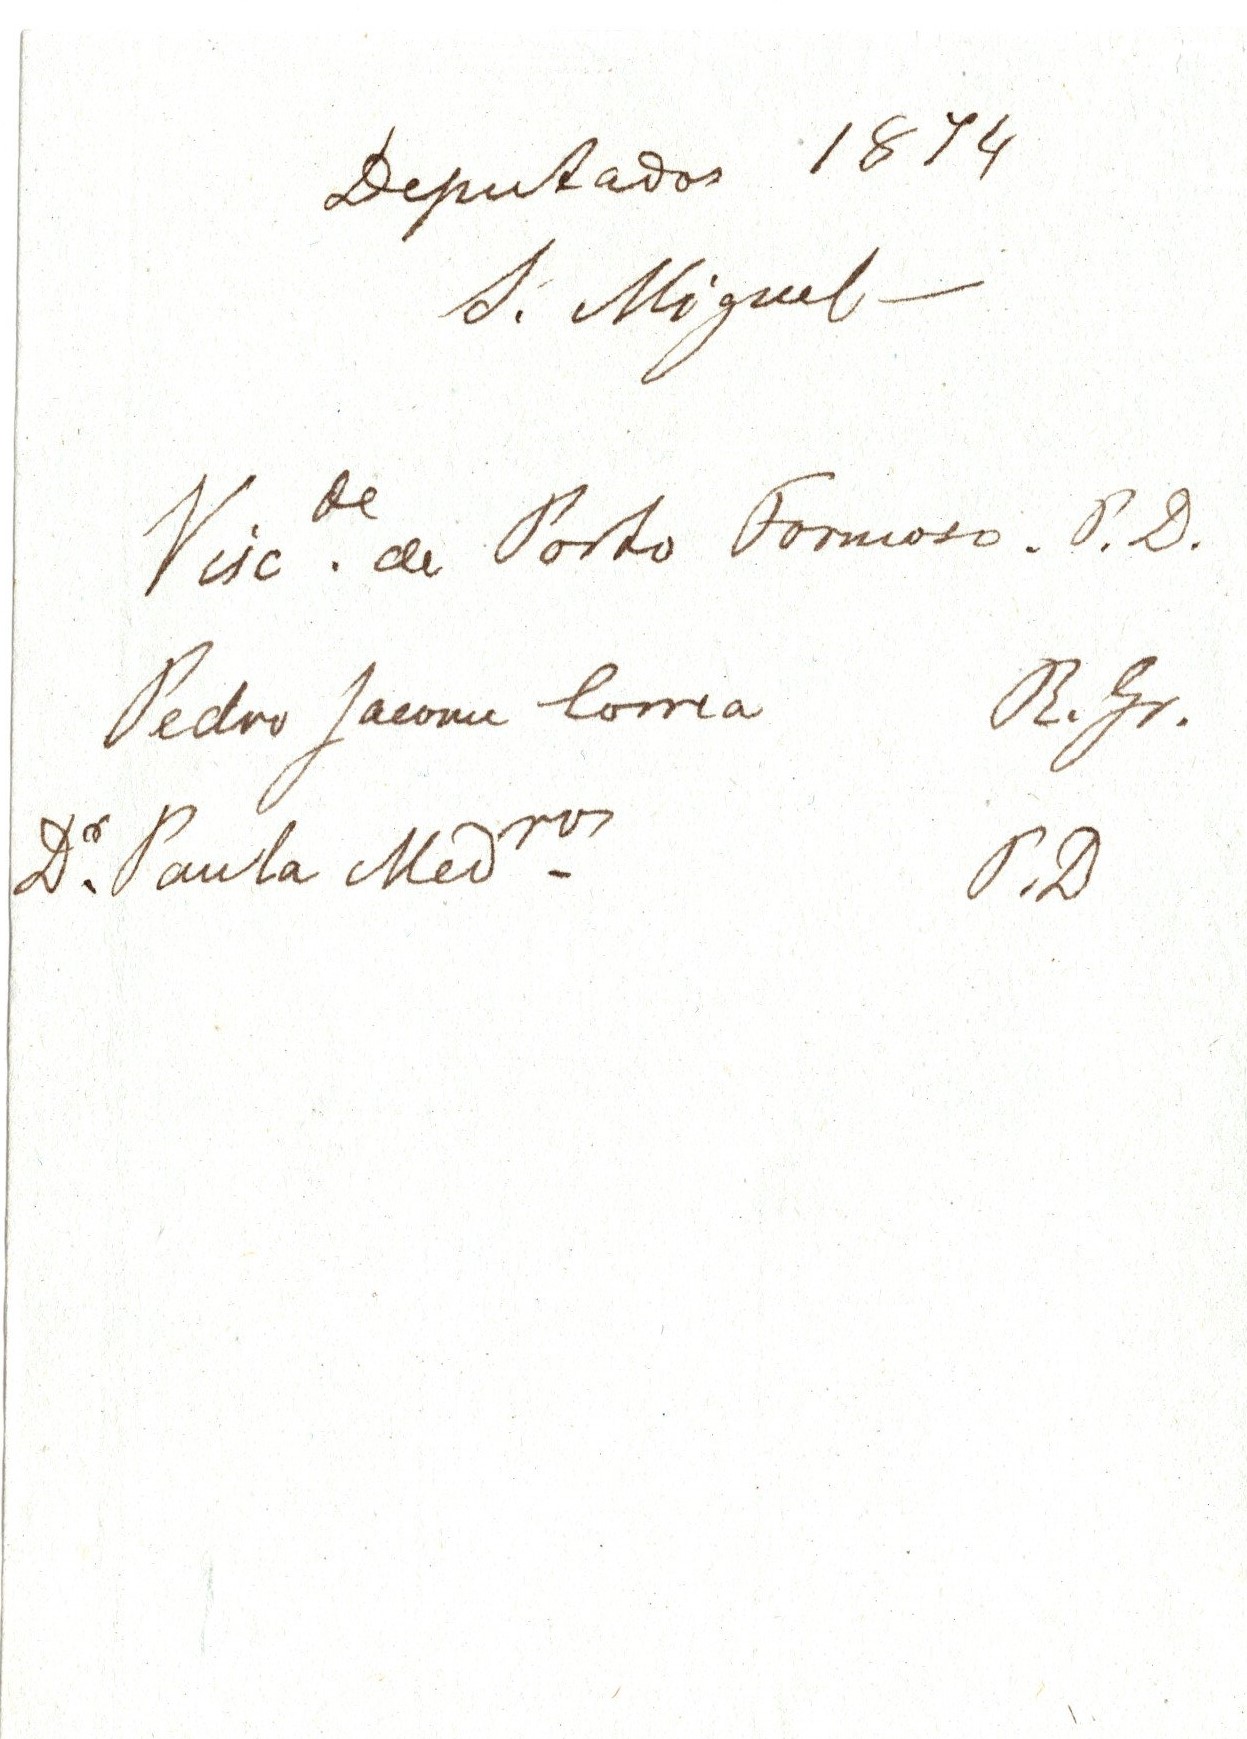 Deputados 1874
S. Miguel —
Visc.de de Porto Formoso. P. D.
Pedro Jacome Correa R. Gr.
Dr. Paula Medros P. D